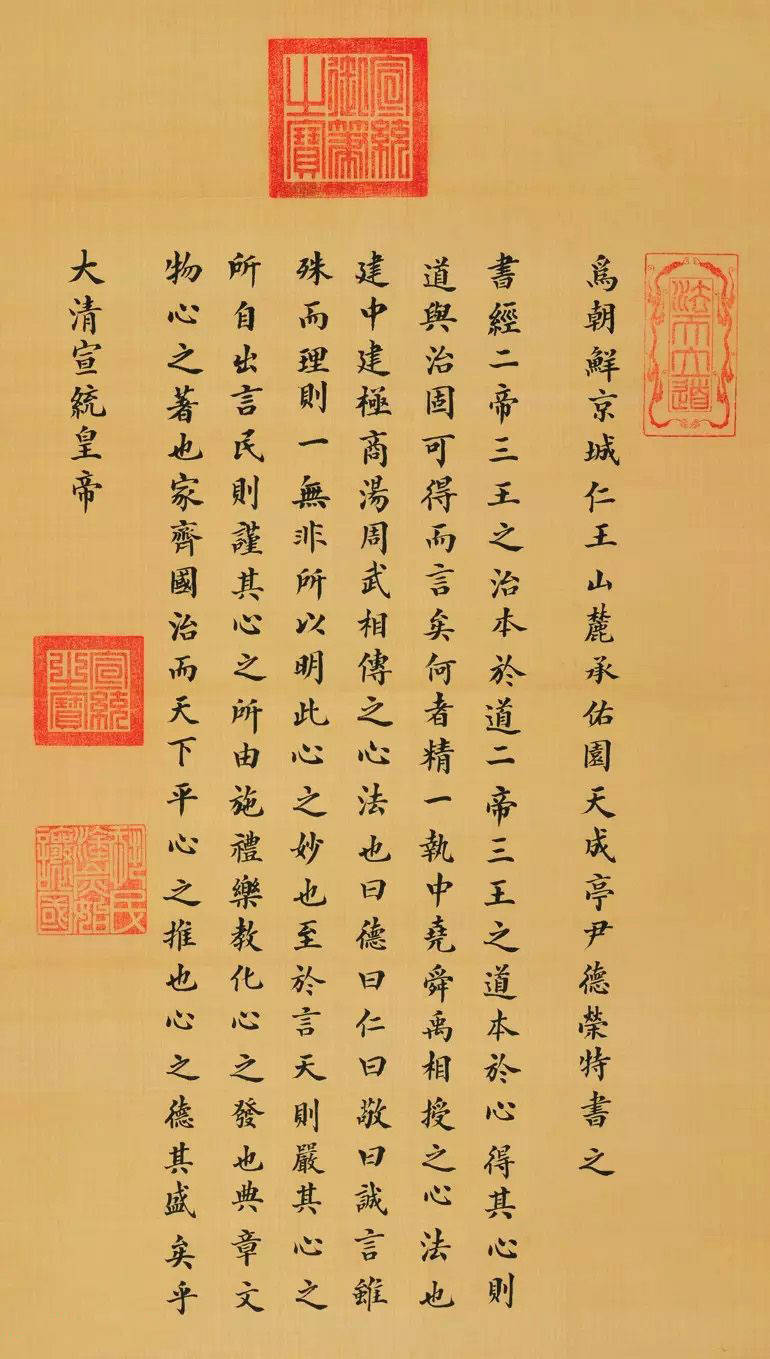 法天立道
為朝鮮京城仁王山麓承佑園天成亭尹德榮特書之
書經二帝三王之治本於道二帝三王之道本於心得其心則
道與治固可得而言矣何者精一執中堯舜禹相授之心法也
建中建極商湯周武相傳之心法也曰德曰仁曰敬曰誠言雖
殊而理則一無非所以明此心之妙也至於言天則嚴其心之
所自出言民則謹其心之所由施禮樂教化心之發也典章文
物心之著也家齊國治而天下平心之推也心之德其盛矣乎
宣統御筆之寶
大清宣統皇帝
宣統之寶